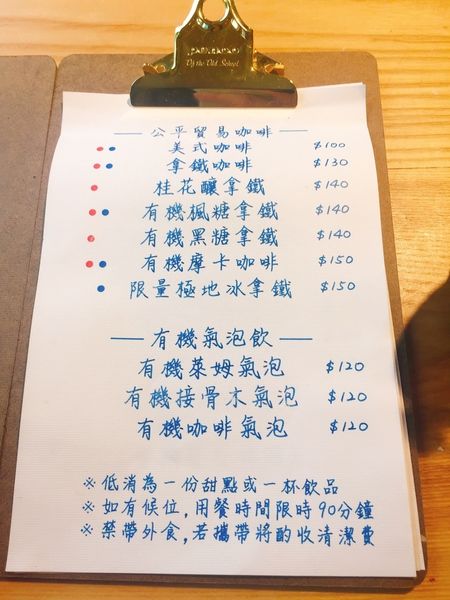 By the Old School
公平貿易咖啡
美式咖啡 $100
拿鐵咖啡 $130
桂花釀拿鐵 $140
有機楓糖拿鐵 $140
有機黑糖拿鐵 $140
有機摩卡咖啡 $150
限量極地冰拿鐵 $150
有機氣泡飲
有機萊姆氣泡 $120
有機接骨木氣泡 $120
有機咖啡氣泡 $120
※低消為一份甜點或一杯飲品
※如有候位,用餐時間限時90分鐘
※禁帶外食,若攜帶將酌收清潔費